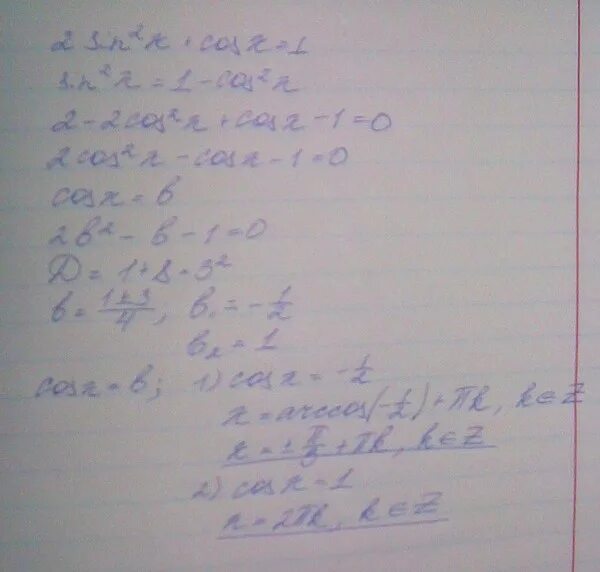 2 sin²x + cosx = 1
sin²x = 1 - cos²x
2 - 2cos²x + cosx - 1 = 0
2cos²x - cosx - 1 = 0
cosx = b
2b² - b - 1 = 0
D = 1 + 8 = 3²
b = (1 ± 3)/4, b₁ = -1/2
b₂ = 1
cosx = b; 1) cosx = -1/2
x = arccos(-1/2) + πk, k ∈ Z
x = ± π/3 + πk, k ∈ Z
2) cosx = 1
x = 2πk, k ∈ Z